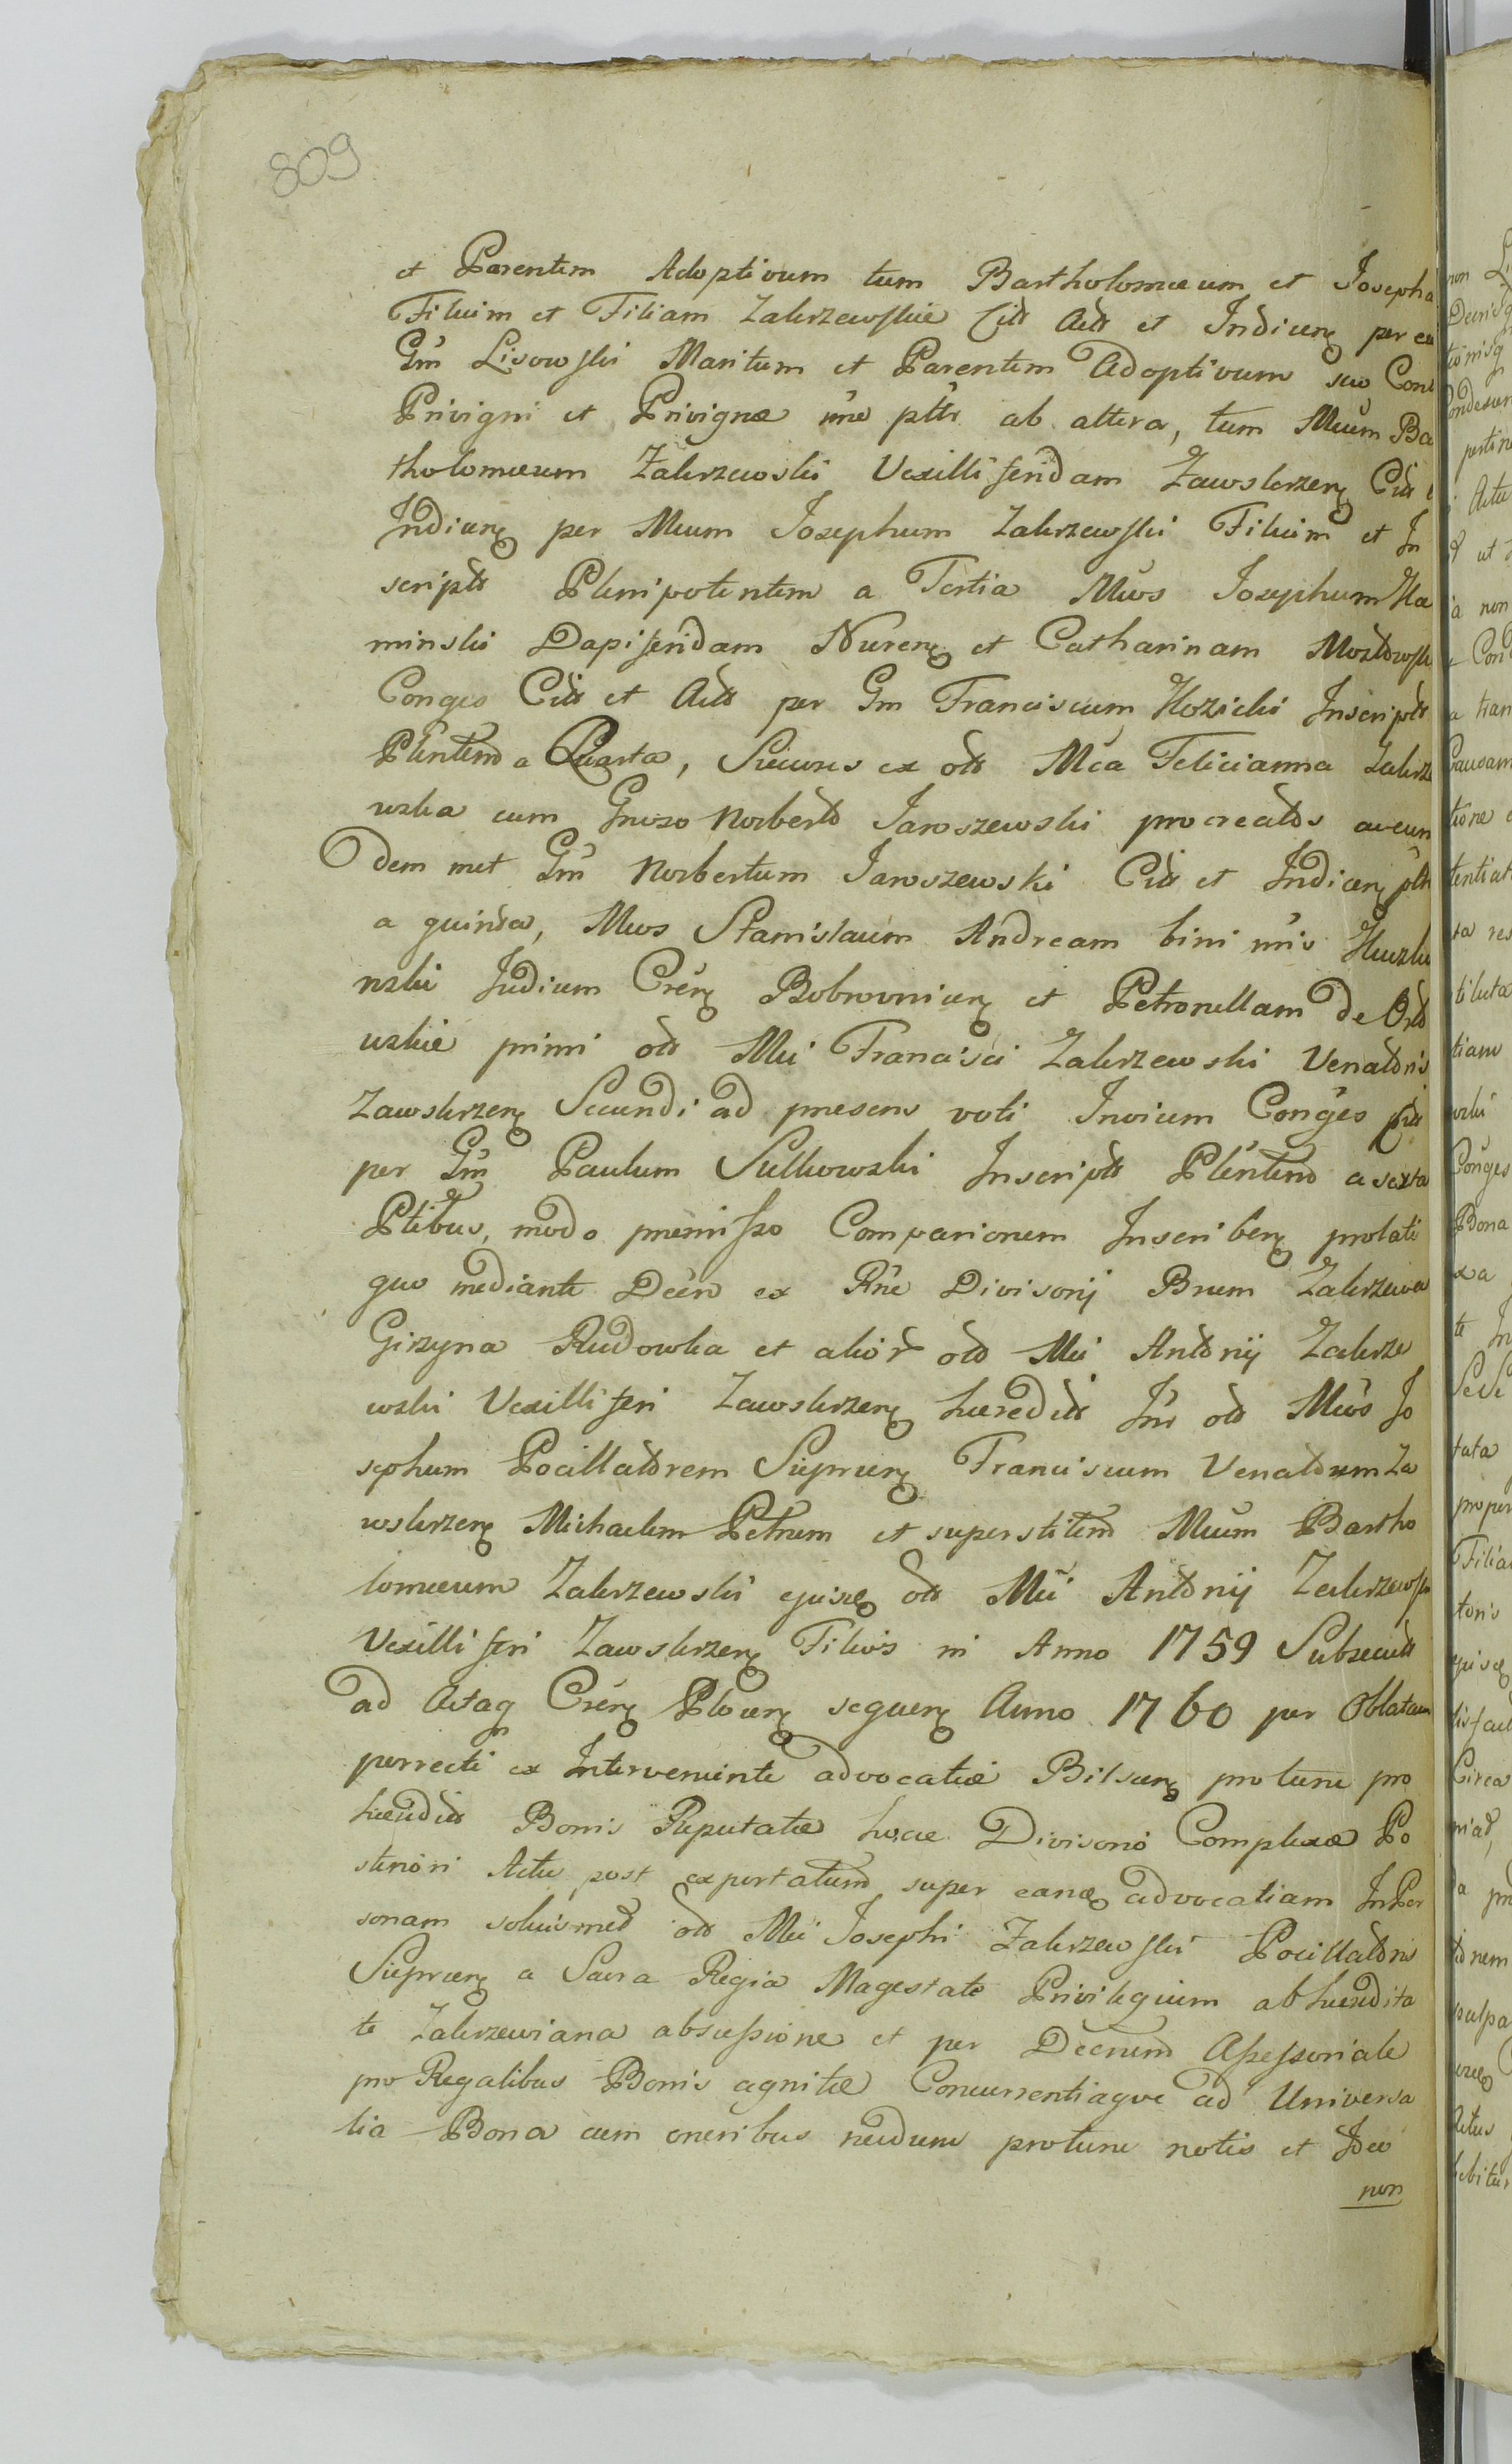 809
et Parentem Adoptivum tum Bartholomæum et Josepha
Filium et Filiam Zakrzewskie Citt Actt et Indicen per eu
Gm Lisowski Maritum et Parentem Adoptivum seu Con
Privigni et Privignæ ptts ab altera, tum Mcum Ba
tholomæum Zakrzewski Vexilliferidam Zawskrzen Citt
Indicen per Mcum Josephum Zakrzewski Filium et In
scriptt Plenipotentem a Tertia Mcos Josephum Ka
minski Dapiferidam Nuren et Catharinam
Conges Citt et Actt per Gm Franciscum Kozicki Inscriptt
Plentem a Quarta, Succres ex ott Mca Felicianna Zakrze
wska cum Gnoso Norberto Jaroszewski procreatos ac eun
dem met Gm Norbertum Jaroszewski Citt et Indicen
a quinta, Mcos Stanislaum Andream bini nnis
nski Judicem Cren Bobrovnicen et Petronellam de
wskie primi ott Mci Francisci Zakrzewski Venatoris
Zawskrzen Secundi ad præsens voti Invicem Conges Citt
per Gm Paulum Sulkowski Inscriptt Plentem a sexta
Ptibus, modo præmisso Comparionem Inscriben prolati
quo mediante Decen ex Rne Divisorij Bnum Zakrzewa
Gizyna Rudowka et alior ott Mci Antonij Zakrze
wski Vexilliferi Zawskrzen hæreditt Inr ott Mcos Jo
sephum Pocillatorem Sieprcen Franciscum Venatorem Za
wskrzen Michaelem Petrum et superstitem Mcum Bartho
lomæum Zakrzewski ejusq ott Mci Antonij Zakrzewski
Vexilliferi Zawskrzen Filios in Anno 1759 Subsecutt
ad Actaq Cren Plocen sequen Anno 1760 per Oblatam
perrecti ex Interveniente advocatiæ Bilscen pro tunc pro
hæreditt Bonis Reputatæ husce Divisorio Complexæ Po
steriori Actu post exportatum super eanq advocatiam In Per
sonam soliusmet ott Mci Josephi Zakrzewski Pocillatoris
Sieprcen a Sacra Regia Magestate Privilegium ab hæredita
te Zakrzewiana abscessione et per Decrum Assessoriale
pro Regalibus Bonis agnitæ Concurrentiaque ad Universa
lia Bona cum oneribus necdum protunc notis et Ideo
non